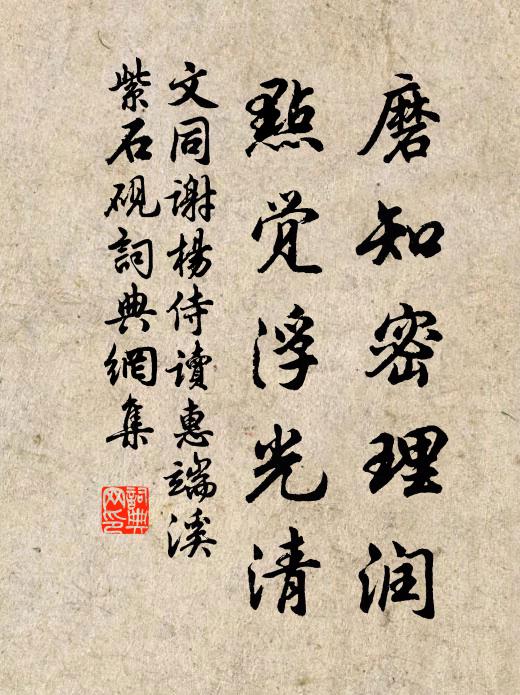 磨知密理润
點觉浮光清
文同谢楊侍讀惠端溪
紫石砚詞典網集
詞典
网印